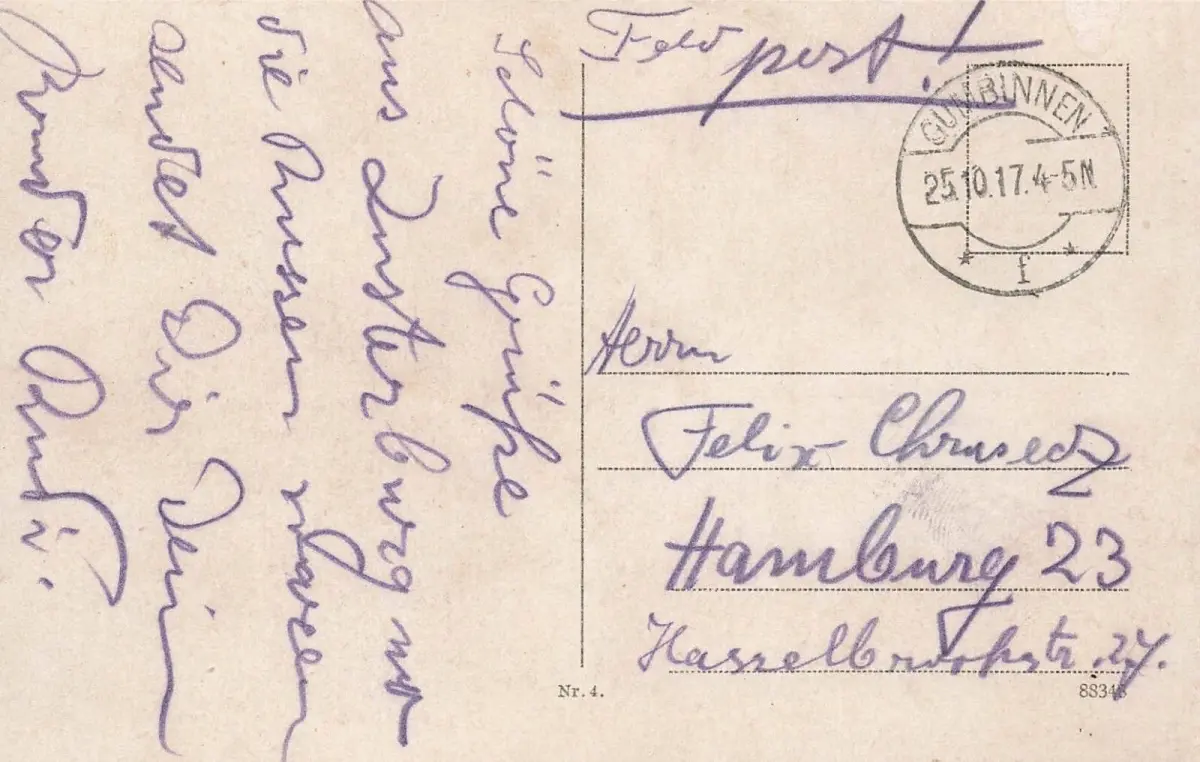 Feldpost!
GUMBINNEN
25.10.17.4-5N
* f *
Schöne Grüße
aus Insterburg wo
die Russen waren
sendet Dir Dein
Bruder Rudi.
Herrn
Felix
Hamburg 23
Hasselbrookstr. 27.
Nr. 4.